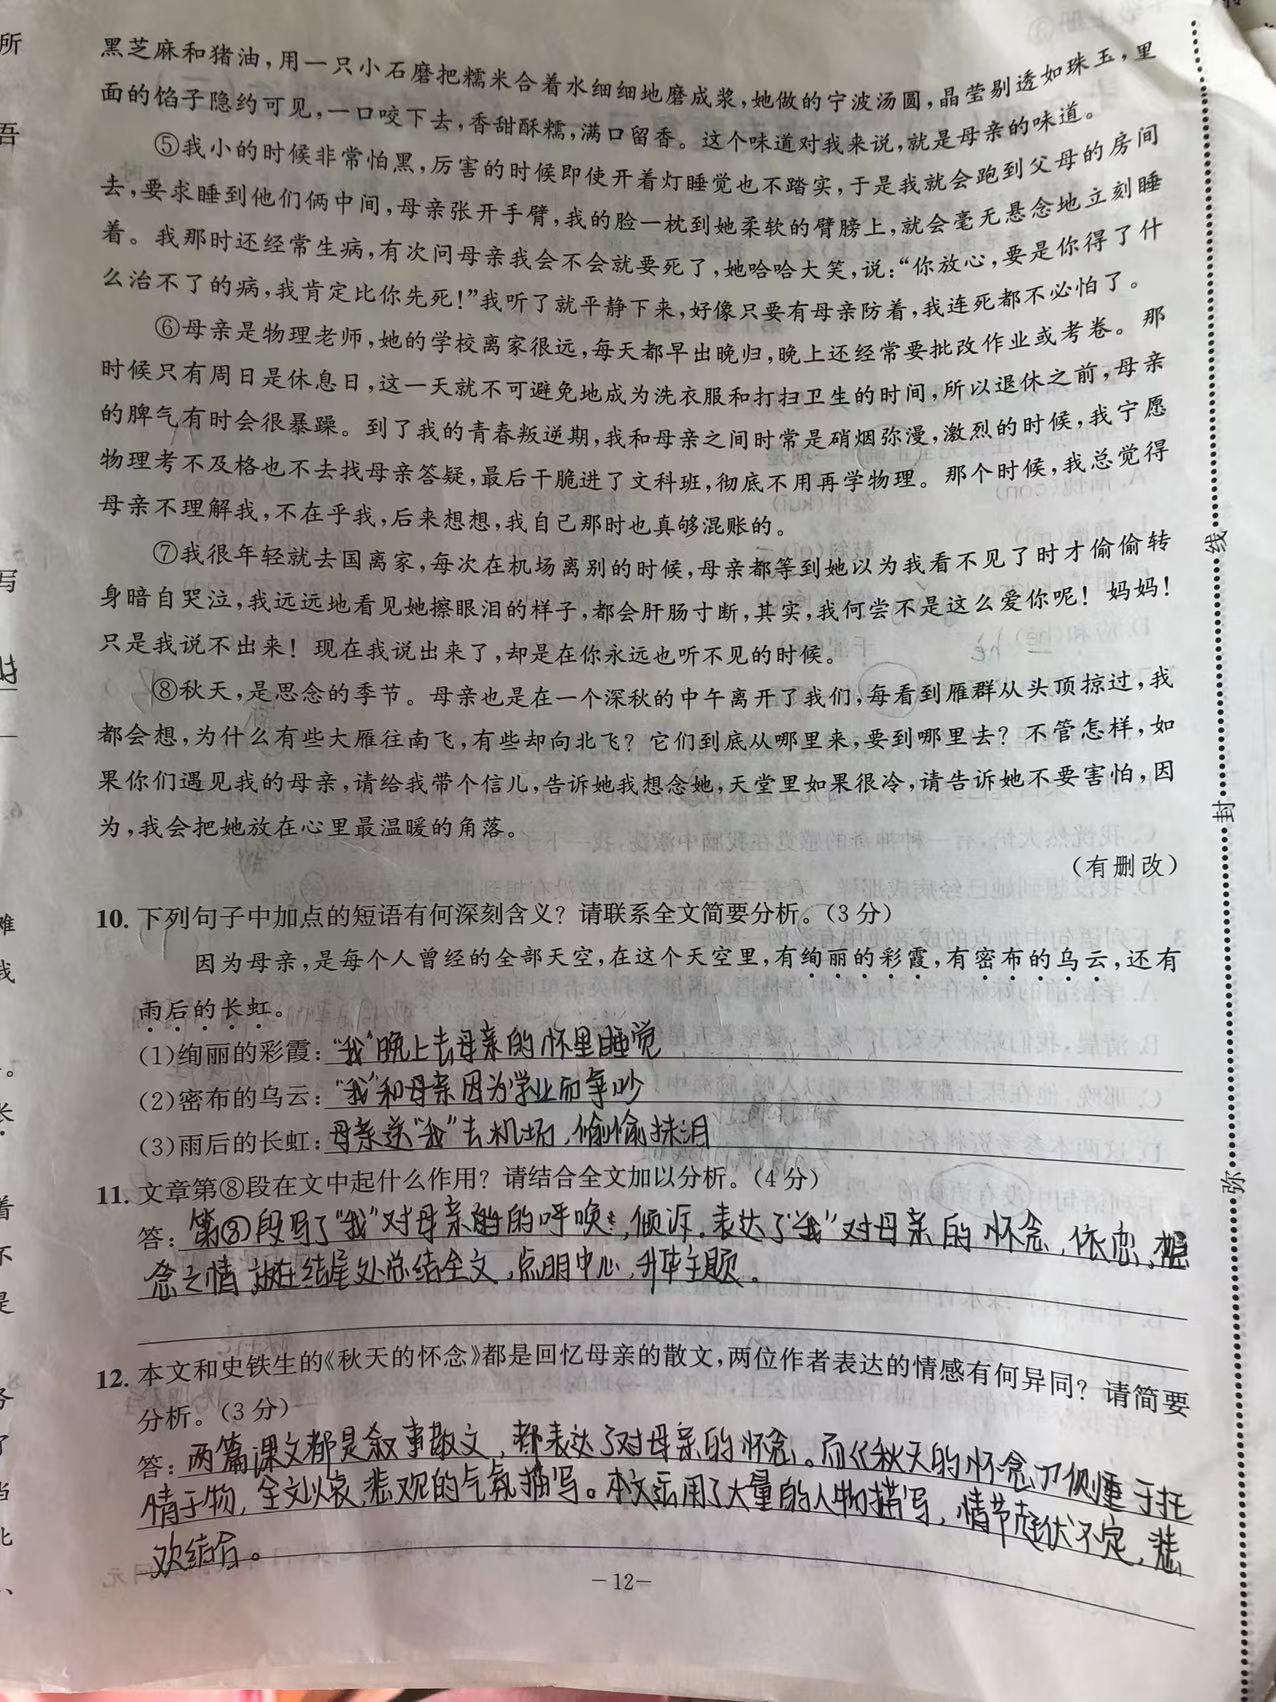 黑芝麻和猪油，用一只小石磨把糯米合着水细细地磨成浆，她做的宁波汤圆，晶莹剔透如珠玉，里
面的馅子隐约可见，一口咬下去，香甜酥糯，满口留香。这个味道对我来说，就是母亲的味道。
⑤我小的时候非常怕黑，厉害的时候即使开着灯睡觉也不踏实，于是我就会跑到父母的房间
去，要求睡到他们俩中间，母亲张开手臂，我的脸一枕到她柔软的臂膀上，就会毫无悬念地立刻睡
着。我那时还经常生病，有次问母亲我会不会就要死了，她哈哈大笑，说：“你放心，要是你得了什
么治不了的病，我肯定比你先死！”我听了就平静下来，好像只要有母亲防着，我连死都不必怕了。
⑥母亲是物理老师，她的学校离家很远，每天都早出晚归，晚上还经常要批改作业或考卷。那
时候只有周日是休息日，这一天就不可避免地成为洗衣服和打扫卫生的时间，所以退休之前，母亲
的脾气有时会很暴躁。到了我的青春叛逆期，我和母亲之间时常是硝烟弥漫，激烈的时候，我宁愿
物理考不及格也不去找母亲答疑，最后干脆进了文科班，彻底不用再学物理。那个时候，我总觉得
母亲不理解我，不在乎我，后来想想，我自己那时也真够混账的。
⑦我很年轻就去国离家，每次在机场离别的时候，母亲都等到她以为我看不见了时才偷偷转
身暗自哭泣，我远远地看见她擦眼泪的样子，都会肝肠寸断，其实，我何尝不是这么爱你呢！妈妈！
只是我说不出来！现在我说出来了，却是在你永远也听不见的时候。
⑧秋天，是思念的季节。母亲也是在一个深秋的中午离开了我们，每看到雁群从头顶掠过，我
都会想，为什么有些大雁往南飞，有些却向北飞？它们到底从哪里来，要到哪里去？不管怎样，如
果你们遇见我的母亲，请给我带个信儿，告诉她我想念她，天堂里如果很冷，请告诉她不要害怕，因
为，我会把她放在心里最温暖的角落。
（有删改）
10. 下列句子中加点的短语有何深刻含义？请联系全文简要分析。（3分）
因为母亲，是每个人曾经的全部天空，在这个天空里，有绚丽的彩霞，有密布的乌云，还有
雨后的长虹。
(1)绚丽的彩霞：“我”晚上去母亲的怀里睡觉
(2)密布的乌云：“我”和母亲因为学业而争吵
(3)雨后的长虹：母亲送“我”去机场，偷偷抹泪
11. 文章第⑧段在文中起什么作用？请结合全文加以分析。（4分）
答：第⑧段写了“我”对母亲的呼唤，倾诉。表达了“我”对母亲的怀念，依恋，想
念之情，在结尾处总结全文，点明中心，升华主题。
12. 本文和史铁生的《秋天的怀念》都是回忆母亲的散文，两位作者表达的情感有何异同？请简要
分析。（3分）
答：两篇课文都是叙事散文，都表达了对母亲的怀念。而《秋天的怀念》侧重于托
情于物，全文以哀，悲观的气氛描写。本文运用了大量的人物描写，情节起伏不定，悲
欢结合。
－12－
线
封
弥